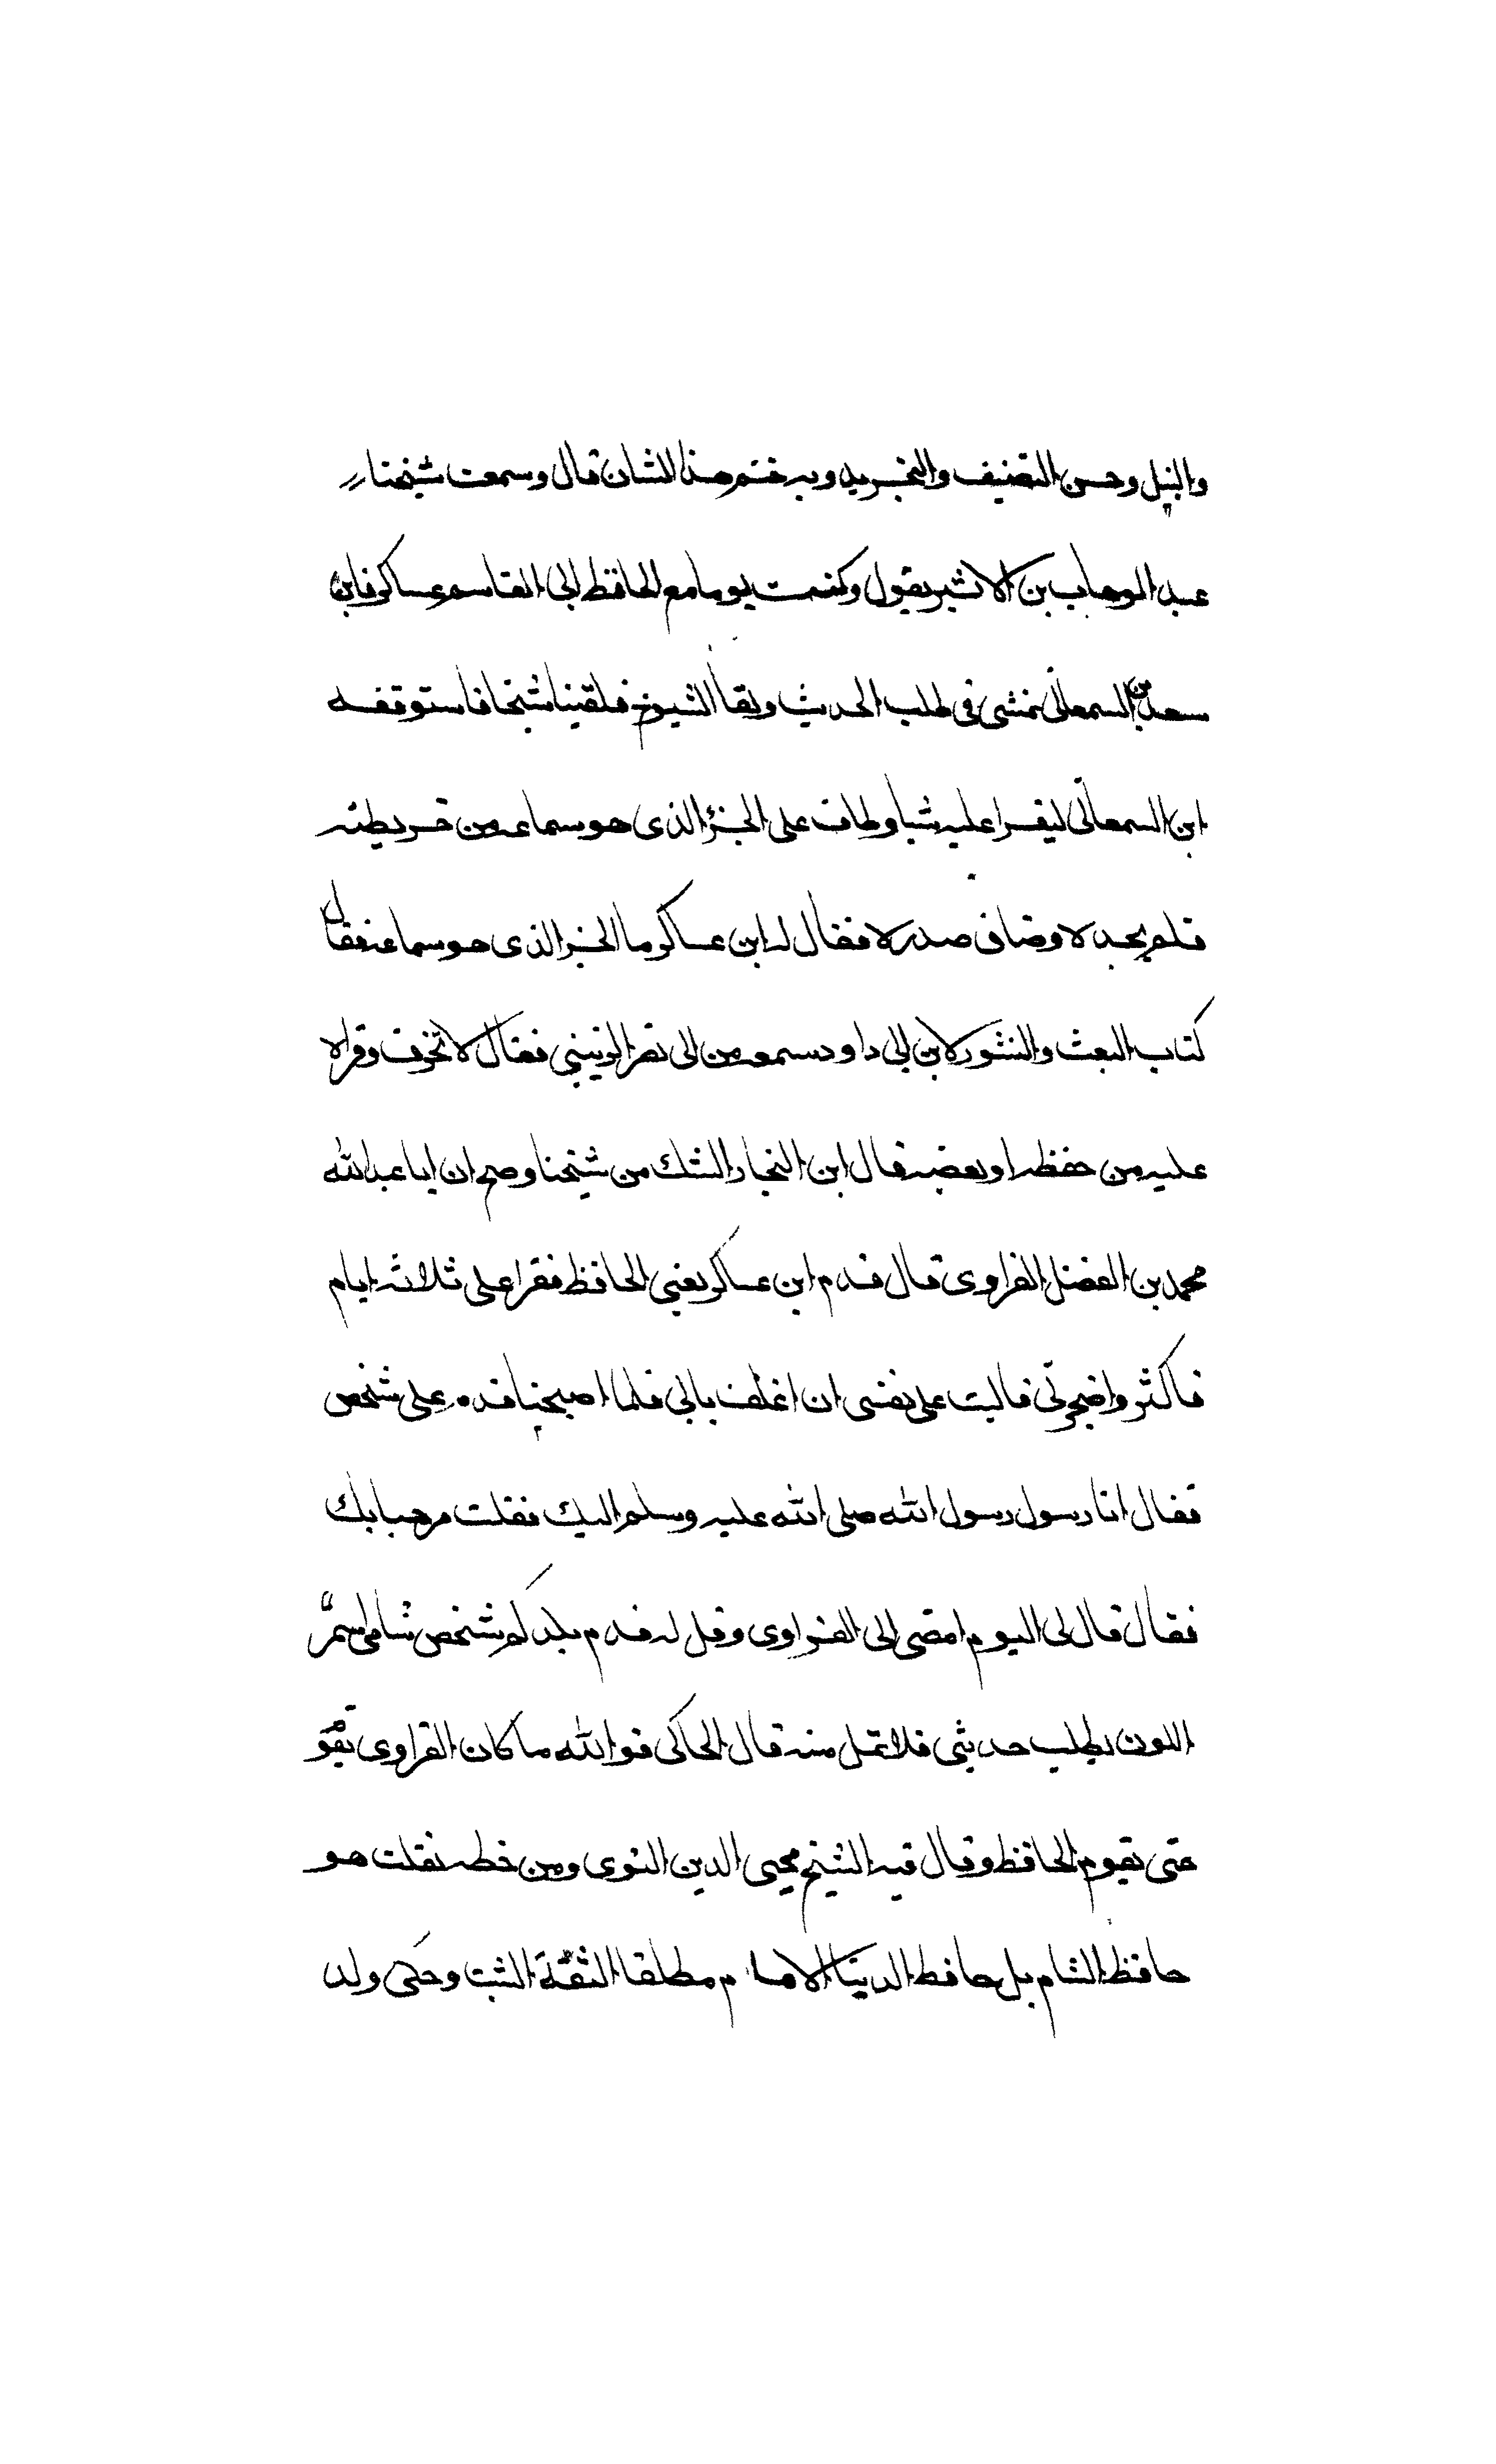 والنبل وحسن التصنيف والتجريد وبه ختم هذا الشان قال وسمعت شيخنا
عبد الوهاب بن الاثير يقول وكنت يوما مع الحافظ ابى القاسم عساكر فابن
سعد بن السمعانى نمشى فى طلب الحديث ولقا الشيوخ فلقينا شيخا فاستوقفه
ابن السمعانى ليقرا عليه شيا وطاف على الجزؤ الذى هو سماعه من خريطته
فلم يجده لا وضاق صدره فقال له ابن عساكر ما الجز الذى هو سماعه فقال
كتاب البعث والنشور لابن ابى داود سمعه من ابى نصر الزينبي فقال لا تخف وقراه
عليه من حفظه او بعضه قال ابن النجار الشك من شيخنا وصح ان ابا عبد الله
محمد بن الفضل الفراوى قال قدم ابن عساكر يعني الحافظ فقرا على ثلاثه ايام
فاكثر واضجرنى فاليت على نفسى ان اغلق بابي فلما اصبحنا قدم على شخص
فقال انا رسول رسول الله صلى الله عليه وسلم اليك فقلت مرحبا بك
فقال قال لى اليوم امضى الى الفراوى وقل له قدم بلدكم شخص شامى اسمر
اللون يطلب حديثي فلا تمل منه قال الحاكى فوالله ما كان الفراوى يقوم
حتى يقوم الحافظ وقال فيه الشيخ محيى الدين النوى ومن خطه نقلت هو
حافظ الشام بل حافظ الدينا الاما م مطلقا الثقة الثبت وحكى ولد